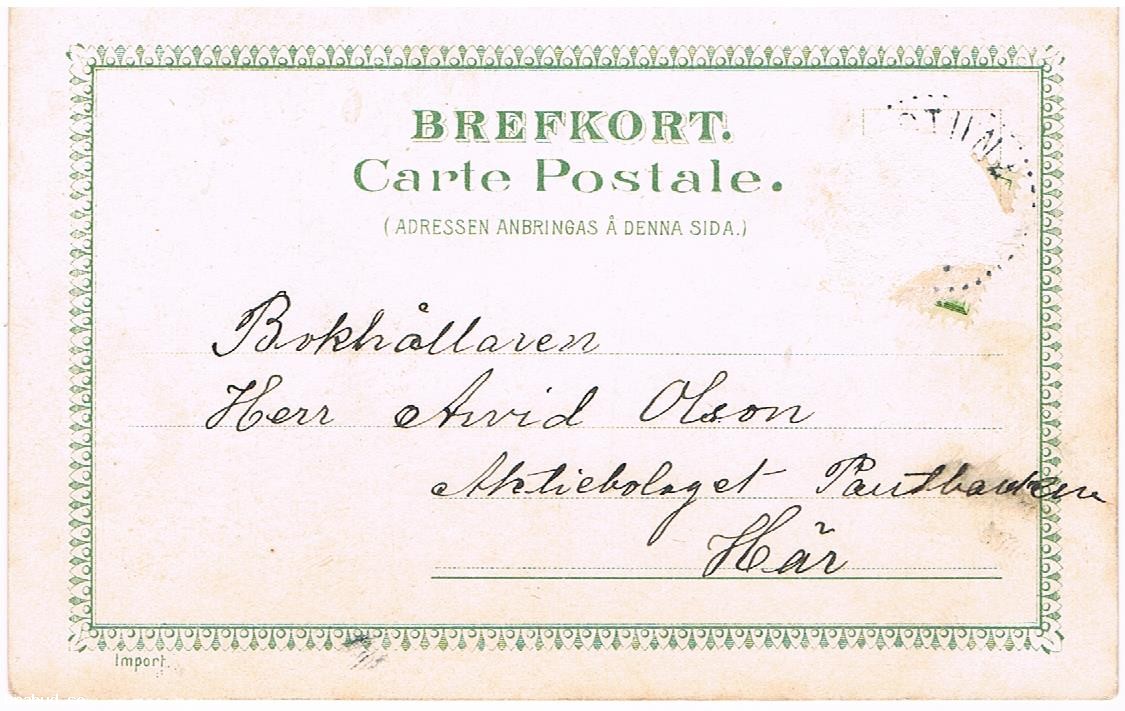 BREFKORT.
Carte Postale.
(ADRESSEN ANBRINGAS Å DENNA SIDA.)
Bokhållaren
Herr Arvid Olson
Aktiebolaget Pantbanken
Här
Import.